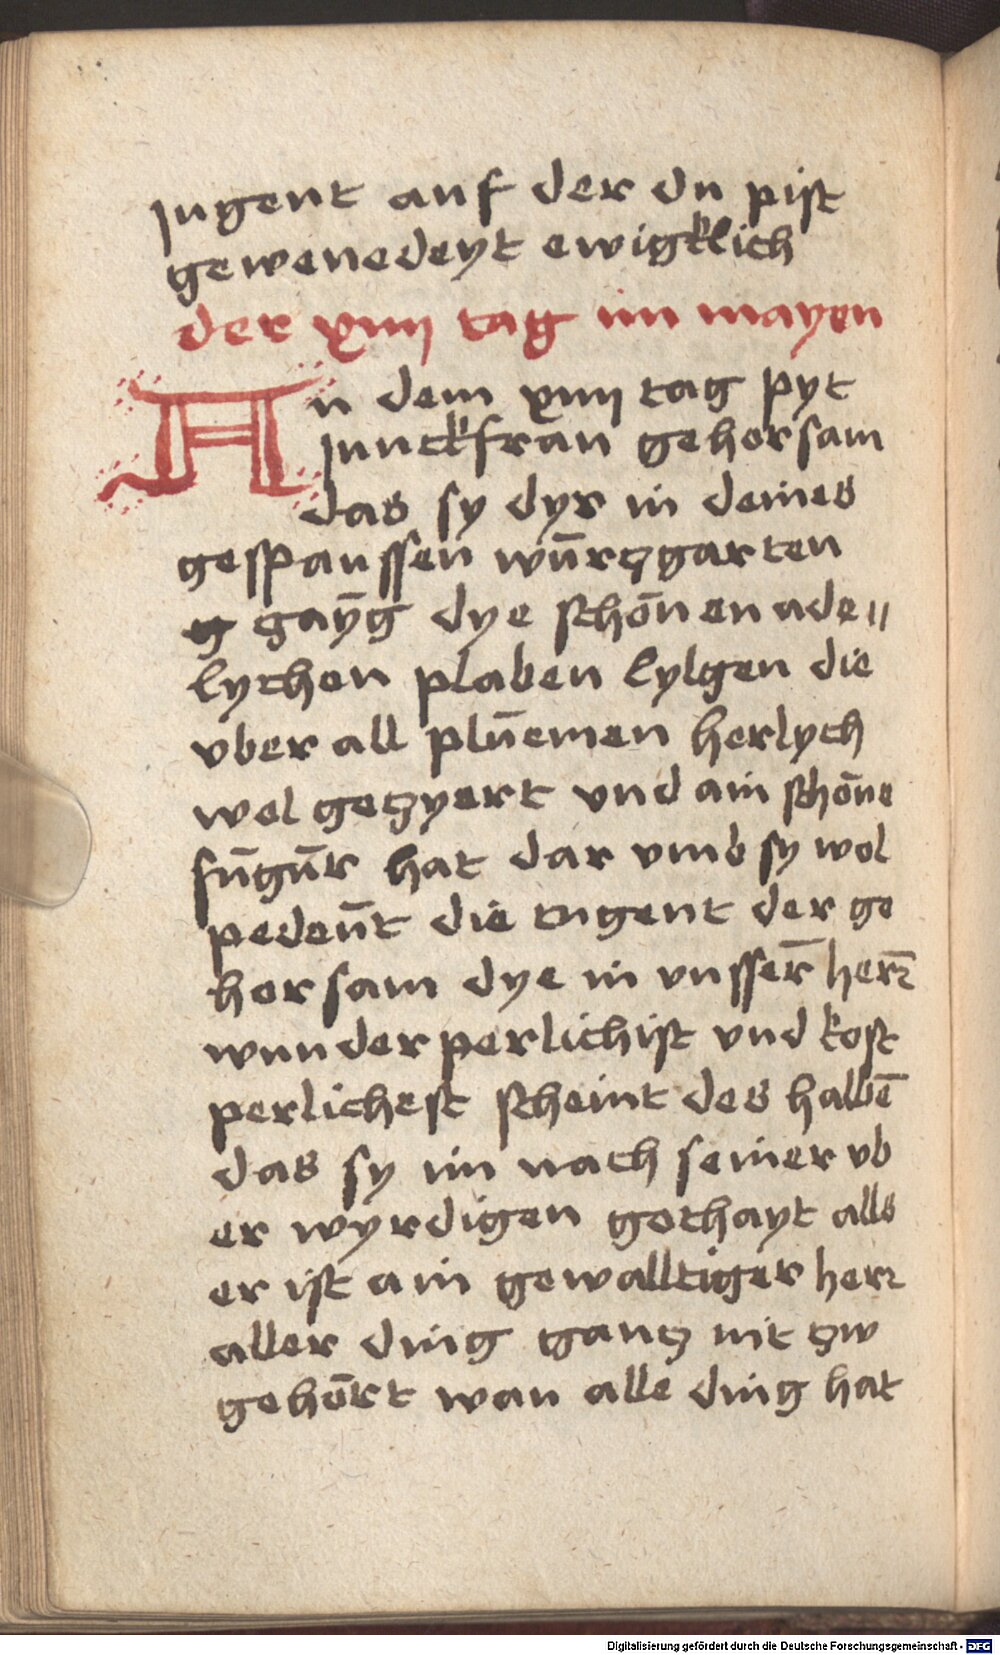 jugent auf der du pist
gewenedeyt ewigklich
der xiiij tag im mayen
An dem xiiij tag pyt
junckfrau gehorsam
das sy dyr in deines
gespanssen wūrczgarten
gaȳg dye schōnen ade〃
lychen plaben lylgen die
vber all plūemen herlych
wol geczyert vnd ain schōne
fūgūr hat dar vmb sy wol
pedeūt die tugent der ge
horsam dye in vnsser̄ her̄
wunderperlichist vnd kost
perlichest scheint des halbē
das sy im nach seiner vb
er wyrdigen gothayt alls
er ist ain gewalltiger herr
aller ding gancz nit czw
gehōrt wan alle ding hat
Digitalisierung gefördert durch die Deutsche Forschungsgemeinschaft - DFG